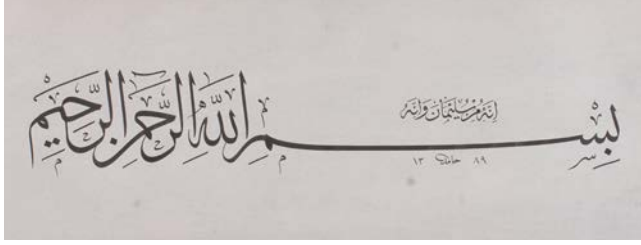 إِنَّهُ مِنْ سُلَيْمَانَ وَإِنَّهُ
بِسْمِ اللَّهِ الرَّحْمَنِ الرَّحِيمِ
حامد ١٣٨٩